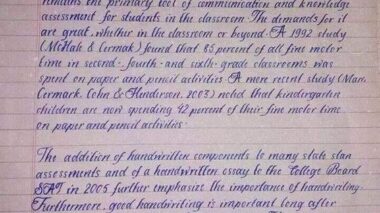 remains the primary tool of communication and knowledge
assessment for students in the classroom. The demands for it
are great, whether in the classroom or beyond. A 1992 study
(McHale & Cermak) found that 85 percent of all fine motor
time in second-, fourth- and sixth-grade classrooms was
spent on paper and pencil activities. A more recent study (Marr,
Cermack, Cohn & Henderson, 2003) noted that kindergarten
children are now spending 42 percent of their fine motor time
on paper and pencil activities.
The addition of handwritten components to many state stan
assessments and of a handwritten essay to the College Board
SAT in 2005 further emphasize the importance of handwriting.
Furthermore, good handwriting is important long after